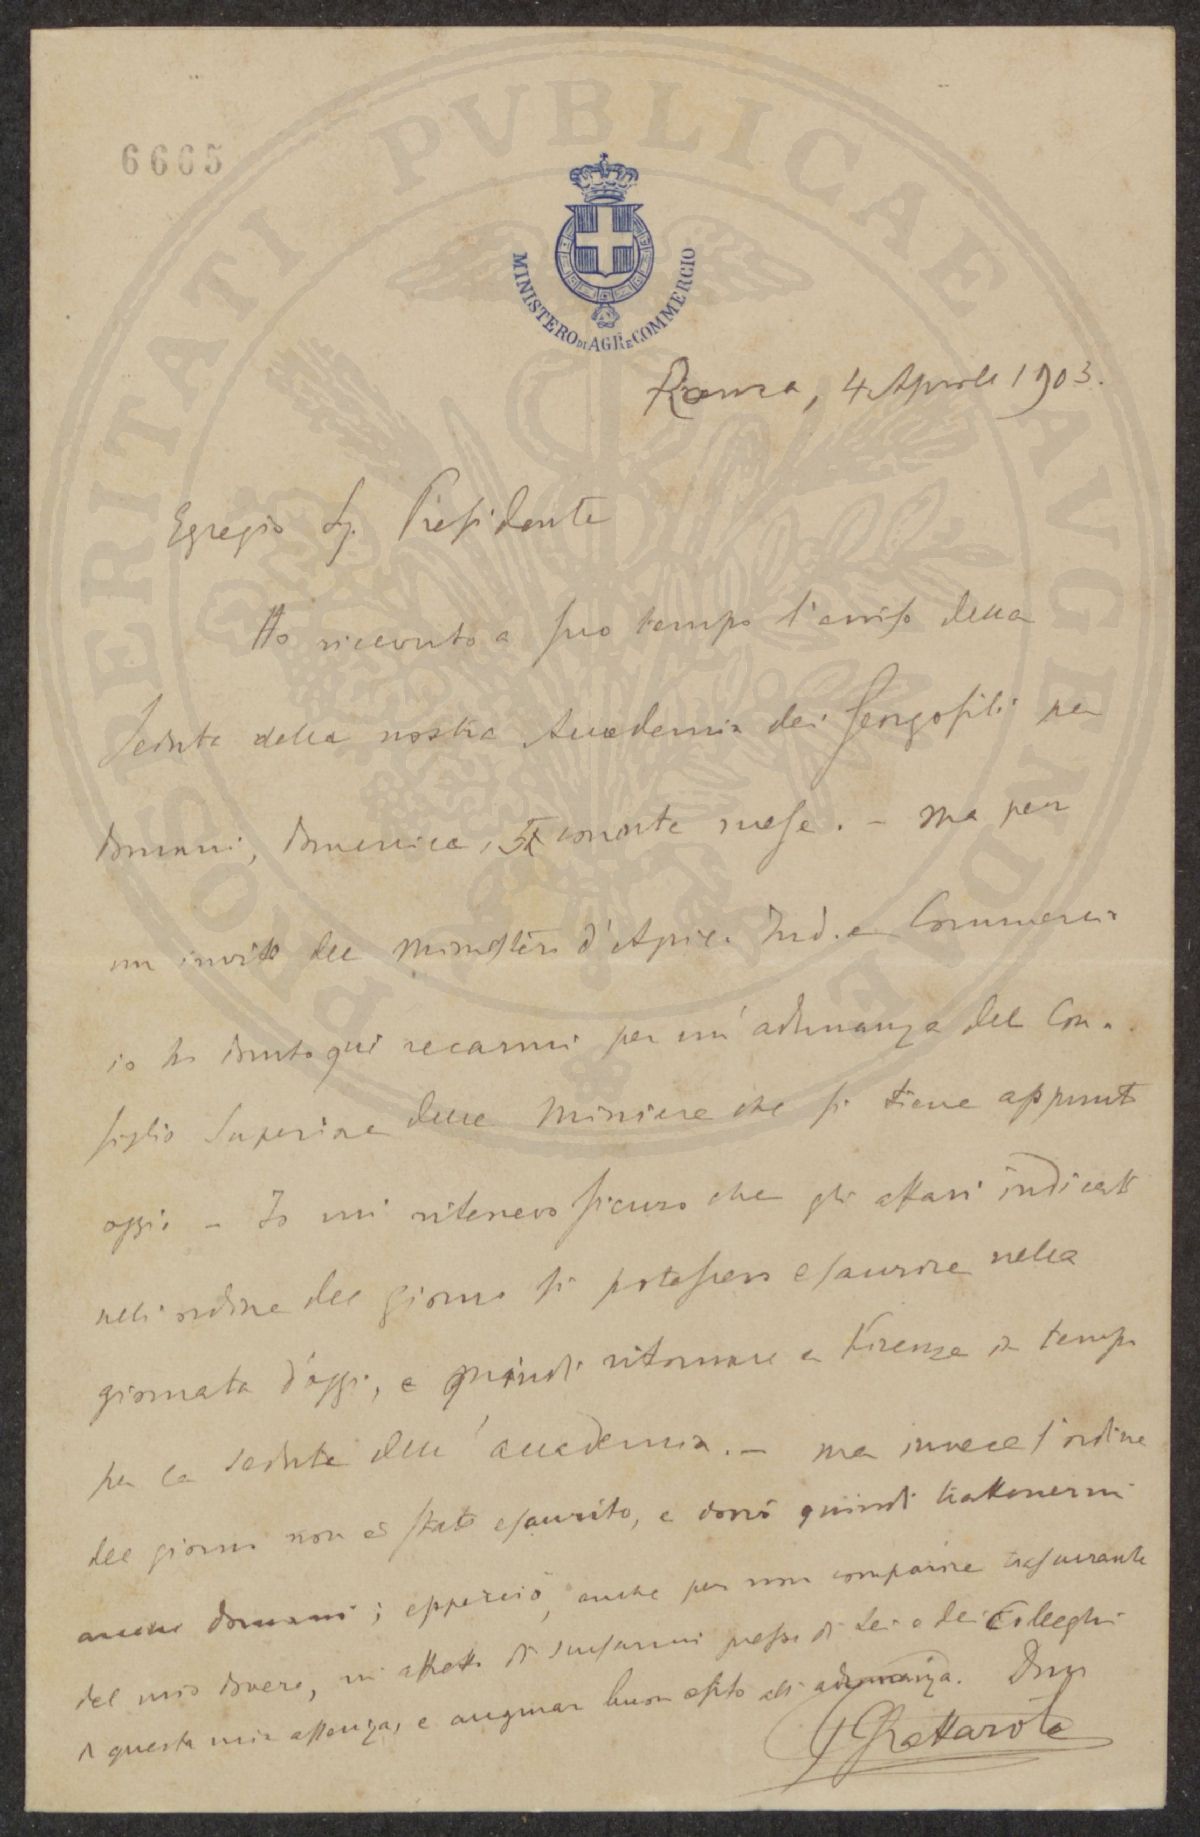 6665
PROSPERITATI PVBLICAE AVGENDAE
MINISTERO DI AGR. E COMMERCIO
Roma, 4 Aprile 1903.
Egregio Sig. Presidente
Ho ricevuto a suo tempo l'avviso della
Seduta della nostra Accademia dei Georgofili per
domani, domenica, 5 corrente mese. - Ma per
un invito del Ministero d'Agric. Ind. e Commercio
io ho dovuto qui recarmi per un'adunanza del Con-
siglio Superiore delle Miniere che si tiene appunto
oggi - Io mi ritenevo sicuro che gli affari indicati
nell'ordine del giorno si potessero esaurire nella
giornata d'oggi, e quindi ritornare a Firenze in tempo
per la seduta dell'accademia. - Ma invece l'ordine
del giorno non è stato esaurito, e dovrò quindi trattenermi
ancora domani; epperciò, anche per non comparire trascurante
del mio dovere, mi affretto di scusarmi presso di Lei e dei Colleghi
di questa mia assenza, e augurar buon esito all'adunanza. Dmo
G Grattarola